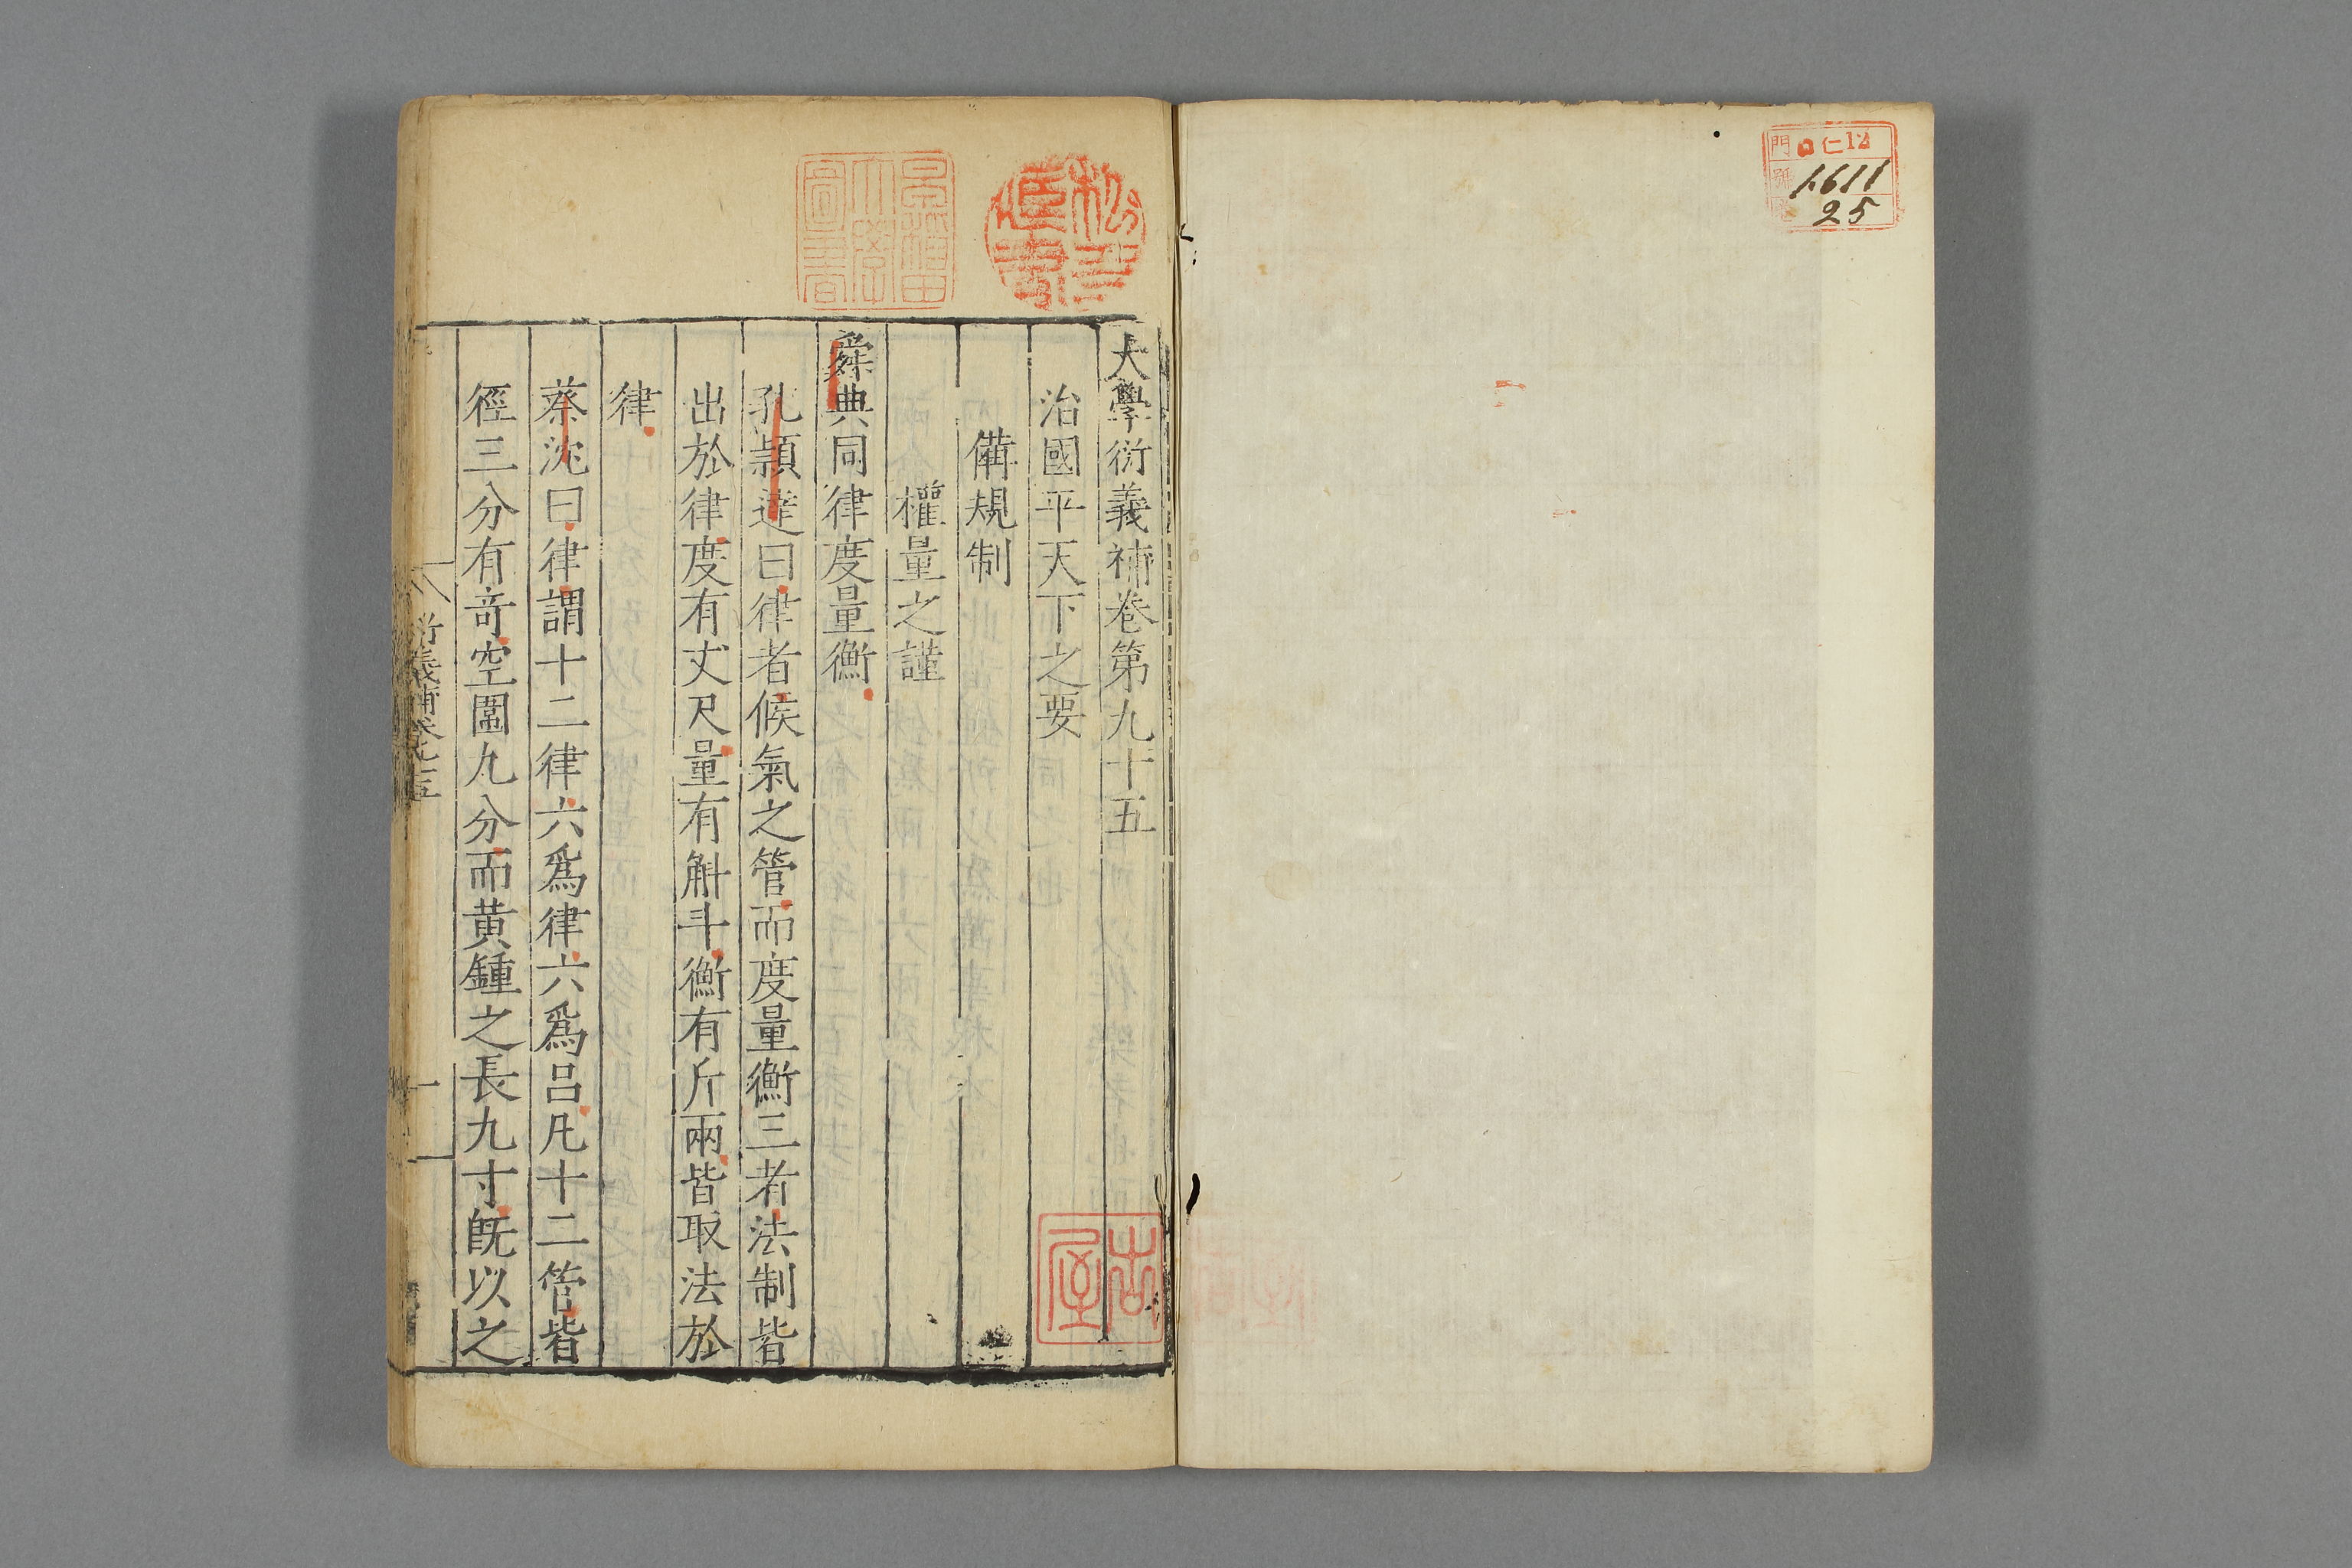 門 ロ仁12
號 1611
25
早稲田大學圖書
大學衍義補卷第九十五
治國平天下之要
備規制
權量之謹
舜典同律度量衡
孔頴達曰律者候氣之管而度量衡三者法制皆
出於律度有丈尺量有斛斗衡有斤兩皆取法於
律
蔡沈曰律謂十二律六爲律六爲吕凡十二管皆
徑三分有竒空圍九分而黄鍾之長九寸旣以之
衍義補卷九十五
一